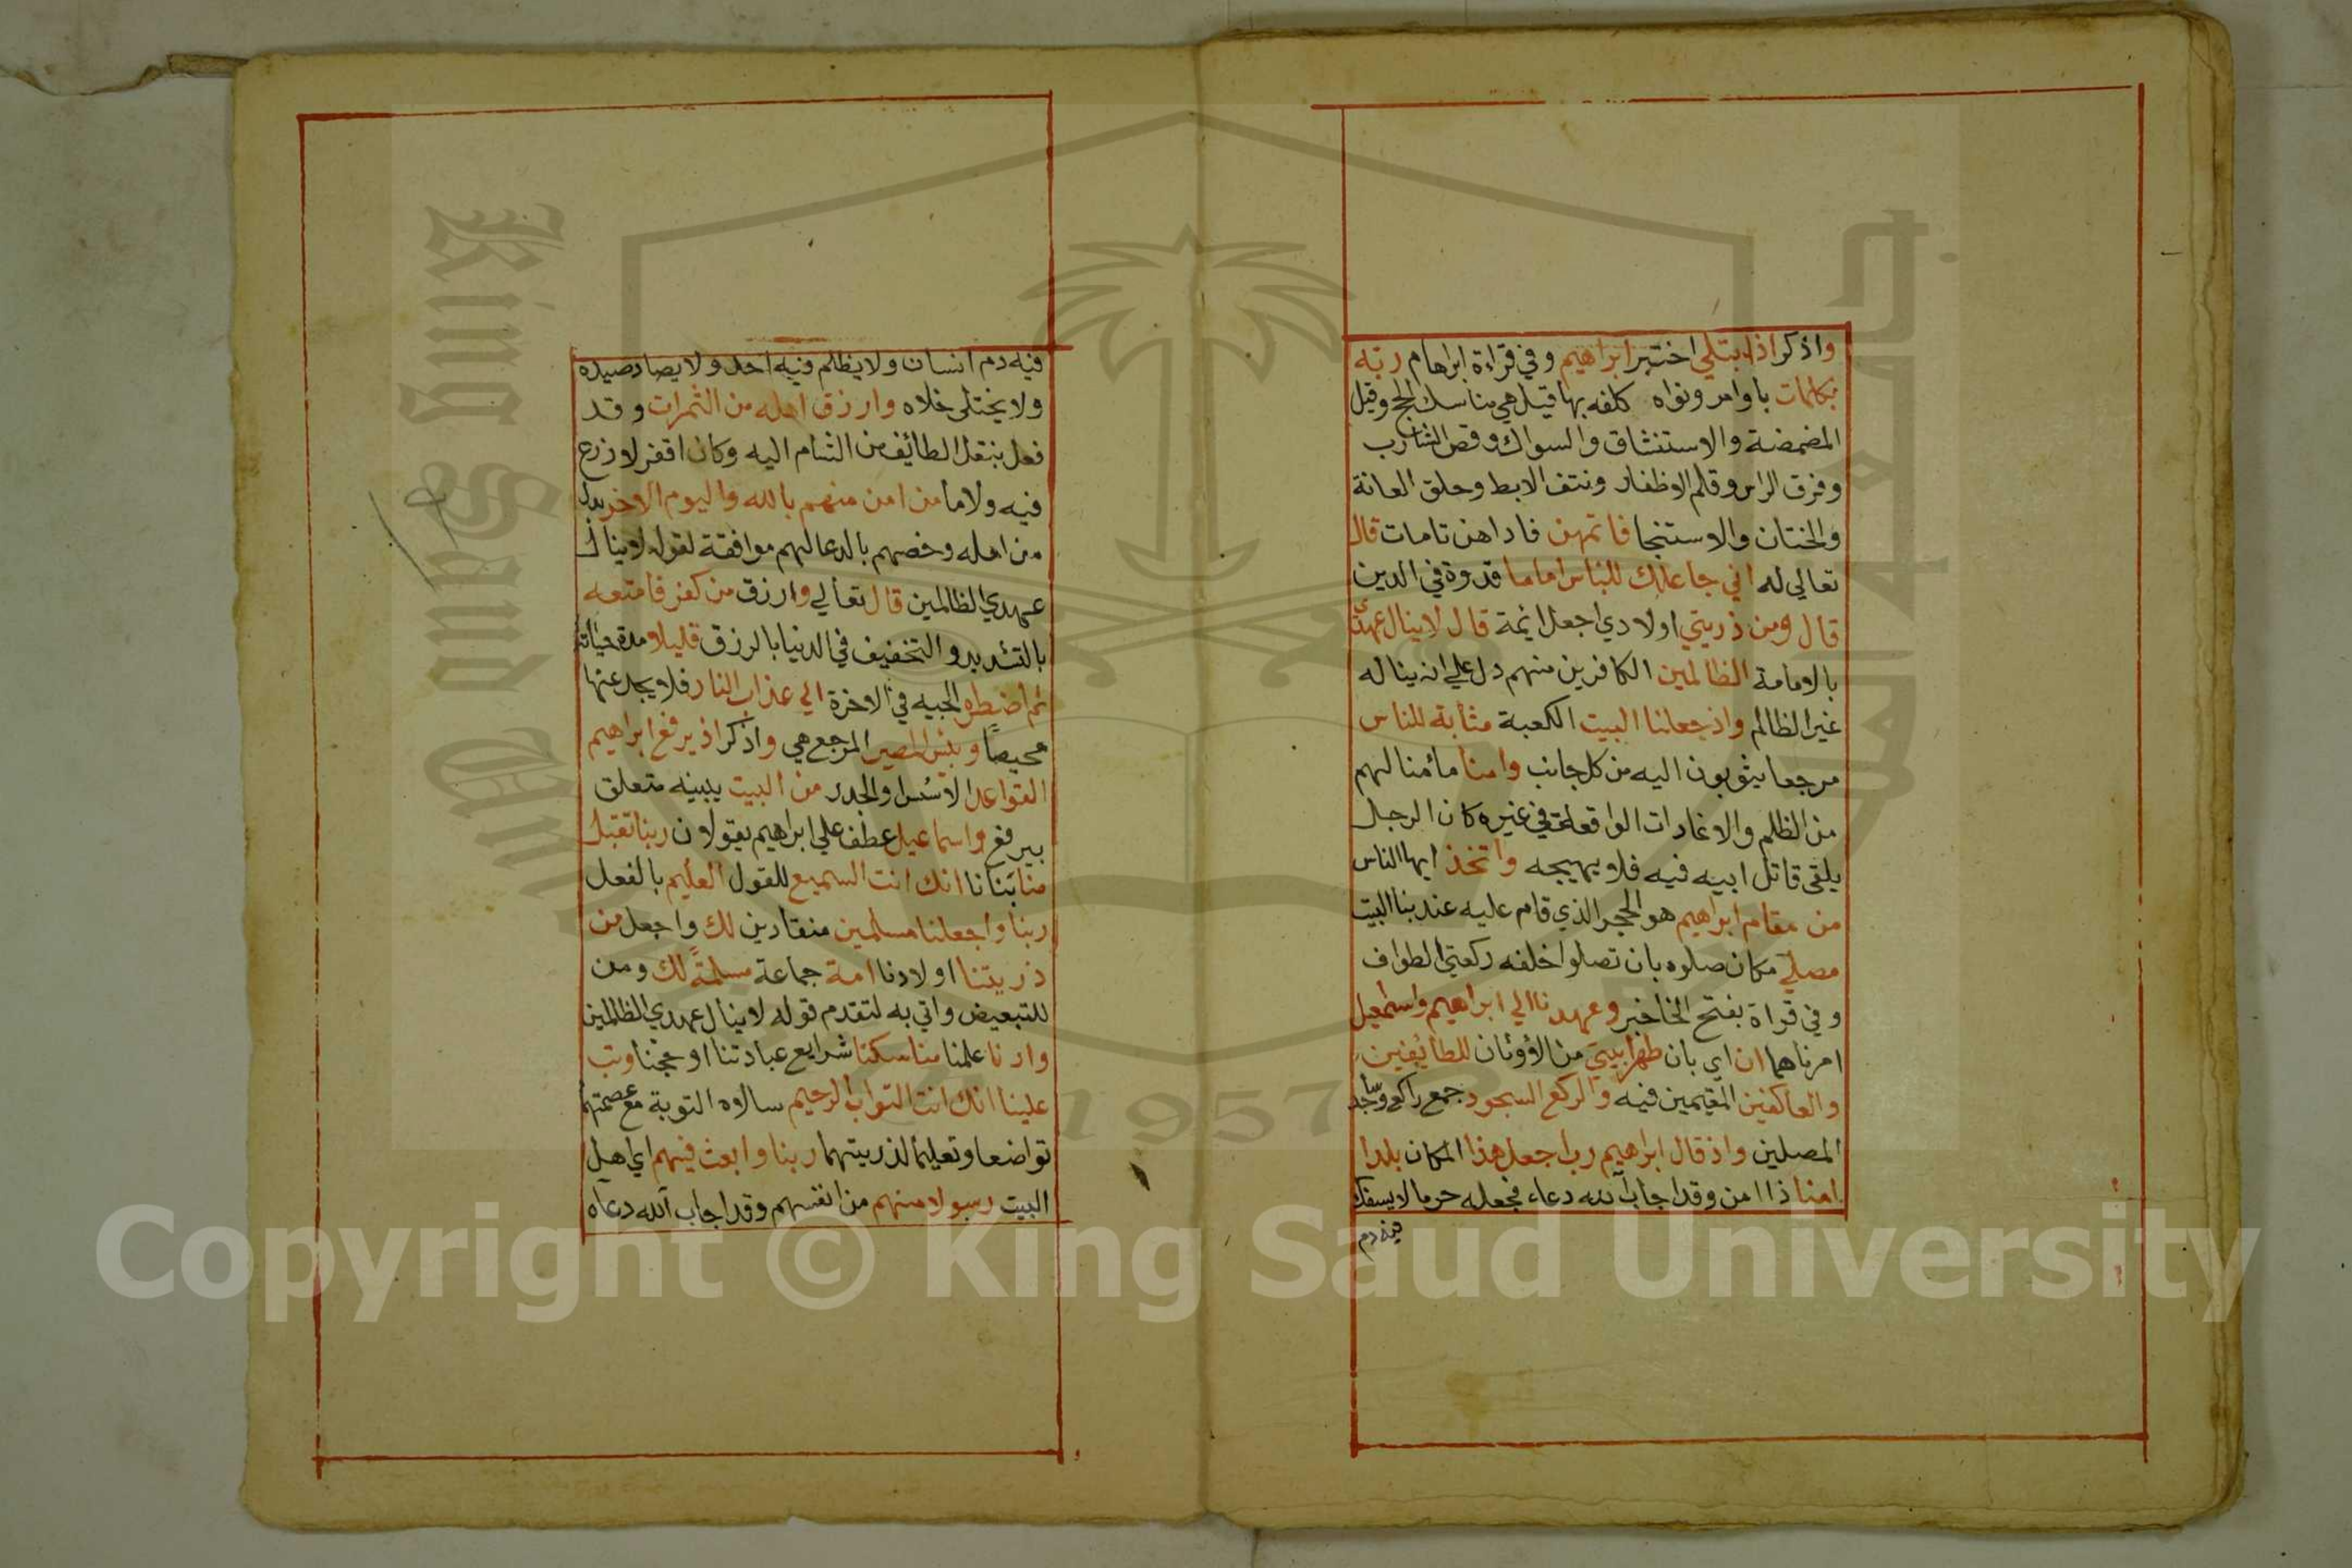 واذكر اذابتلي اختبر ابراهيم وفي قراءة ابراهام ربه
بكلمات باوامر ونواه كلفه بها قيل هي مناسك الحج وقيل
المضمضة والاستنشاق والسواك وقص الشارب
وفرق الراس وقلم الاظفار ونتف الابط وحلق العانة
والختان والاستنجا فاتمهن فاداهن تامات قال
تعالي له اني جاعلك للناس اماما قدوة في الدين
قال ومن ذريتي اولادي اجعل ائمة قال لاينال عهدي
بالامامة الظالمين الكافرين منهم دل علي انه يناله
غير الظالم واذ جعلنا البيت الكعبة مثابة للناس
مرجعا يثوبون اليه من كل جانب وامنا مامنا لهم
من الظلم والاغارات الواقعة في غيره كان الرجل
يلقي قاتل ابيه فيه فلا يهيجه واتخذ ايها الناس
من مقام ابراهيم هو الحجر الذي قام عليه عند بنا البيت
مصلي مكان صلوه بان تصلوا خلفه ركعتي الطواف
وفي قراة بفتح الخا خبر وعهدنا الي ابراهيم واسمعيل
امرناهما ان اي بان طهرا بيتي من الاوثان للطائفين
والعاكفين المقيمين فيه والركع السجود جمع راكع وساجد
المصلين واذ قال ابرهيم رب اجعل هذا المكان بلدا
امنا ذا امن وقد اجاب الله دعاء فجعله حرما لا يسفك
فيه دم
فيه دم انسان ولا يظلم فيه احد ولا يصاد صيده
ولا يختلي خلاه وارزق اهله من الثمرات وقد
فعل بنقل الطائف من الشام اليه وكان اقفر لا زرع
فيه ولا ما من امن منهم بالله واليوم الاخر بدل
من اهله وخصهم بالدعا لهم موافقة لقوله لاينال
عهدي الظالمين قال تعالي وارزق من كفر فامتعه
بالتشديد والتخفيف في الدنيا بالرزق قليلا مدة حياته
ثم اضطره الجيه في الاخرة الي عذاب النار فلا يجد عنها
محيصا وبئس المصير المرجع هي واذكر اذ يرفع ابراهيم
القواعد الاسس والجدر من البيت يبنيه متعلق
بيرفع واسماعيل عطف علي ابراهيم يقولان ربنا تقبل
منا بنانا انك انت السميع للقول العليم بالفعل
ربنا واجعلنا مسلمين منقادين لك واجعل من
ذريتنا اولادنا امة جماعة مسلمة لك ومن
للتبعيض واتي به لتقدم قوله لاينال عهدي الظالمين
وارنا علمنا مناسكنا شرايع عبادتنا او حجنا وتب
علينا انك انت التواب الرحيم سالاه التوبة مع عصمتهما
تواضعا وتعليما لذريتهما ربنا وابعث فيهم اي اهل
البيت رسولا منهم من انفسهم وقد اجاب الله دعاه
King Saud University
1957
Copyright © King Saud University